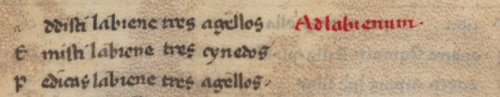 a ddisti labiene tres agellos Ad labienum.
E misti labiene tres cynedos
P edicas labiene tres agellos.